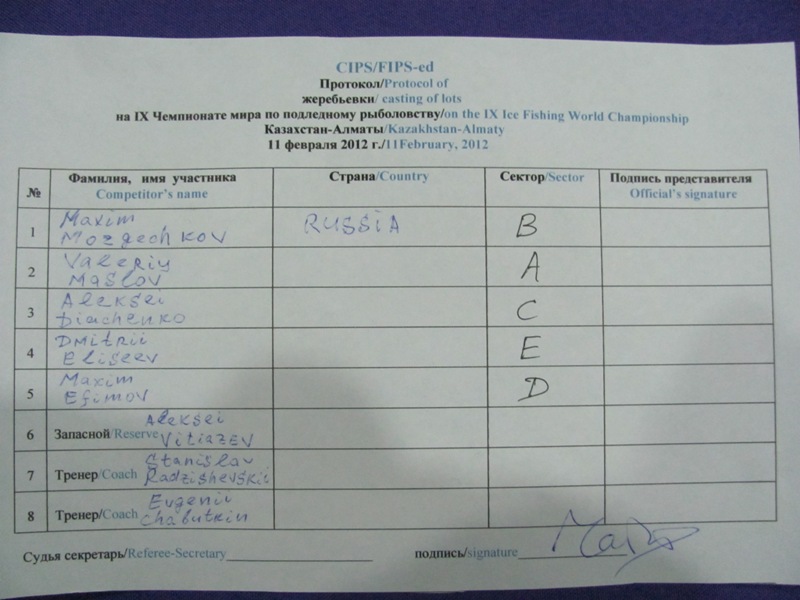 CIPS/FIPS-ed
Протокол/Protocol of
жеребьевки/ casting of lots
на IX Чемпионате мира по подледному рыболовству/on the IX Ice Fishing World Championship
Казахстан-Алматы/Kazakhstan-Almaty
11 февраля 2012 г./11February, 2012
№ Фамилия, имя участника Страна/Country Сектор/Sector Подпись представителя
Competitor's name Official's signature
1 Maxim RUSSIA B
2 Valeriy A
Maslov
3 Aleksei C
Diachenko
4 Dmitrii E
Eliseev
5 Maxim D
Efimov
6 Запасной/Reserve Aleksei
Vitiazev
7 Тренер/Coach Stanislav
Radzishevskii
8 Тренер/Coach Evgenii
Chabutkin
Судья секретарь/Referee-Secretary подпись/signature